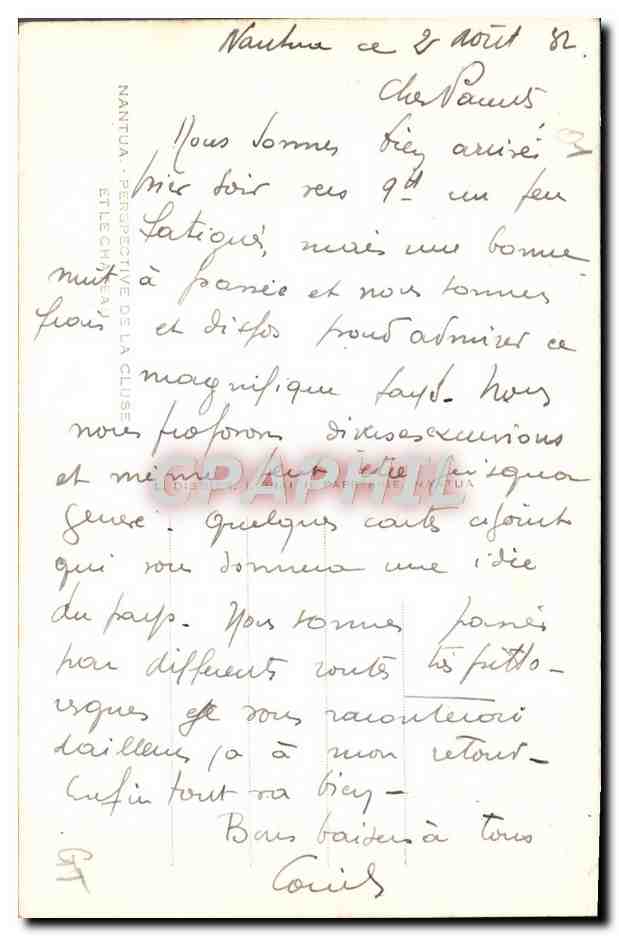 Nantua ce 2 Août 52.
Chers Parents
Nous sommes bien arrivés
hier soir vers 9H un peu
fatigués, mais une bonne
nuit à passée et nous sommes
frais et dispos pour admirer ce
magnifique pays. Nous
nous proposons diverses excursions
et même peut être jusqua
Genève. Quelques cartes ci joint
qui vous donnera une idée
du pays. Nous sommes passés
par différents routes très pitto-
resques je vous raconterai
dailleurs ça à mon retour-
Enfin tout va bien-
Bons baisers à tous
NANTUA. - PERSPECTIVE DE LA CLUSE
ET LE CHATEAU
CPAPHIL
PAPETERIE, NANTUA